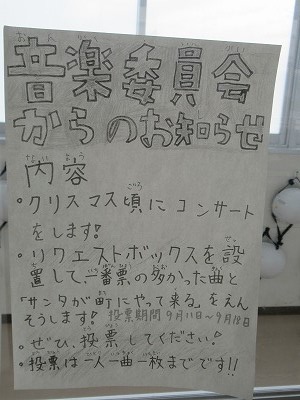 音楽委員会
からのお知らせ
内容
・クリスマス頃にコンサート
をします!
・リクエストボックスを設
置して、一番票の多かった曲と
「サンタが町にやって来る」をえん
そうします! 投票期間 9月11日~9月18日
・ぜひ、投票してください!
・投票は一人一曲一枚までです!!